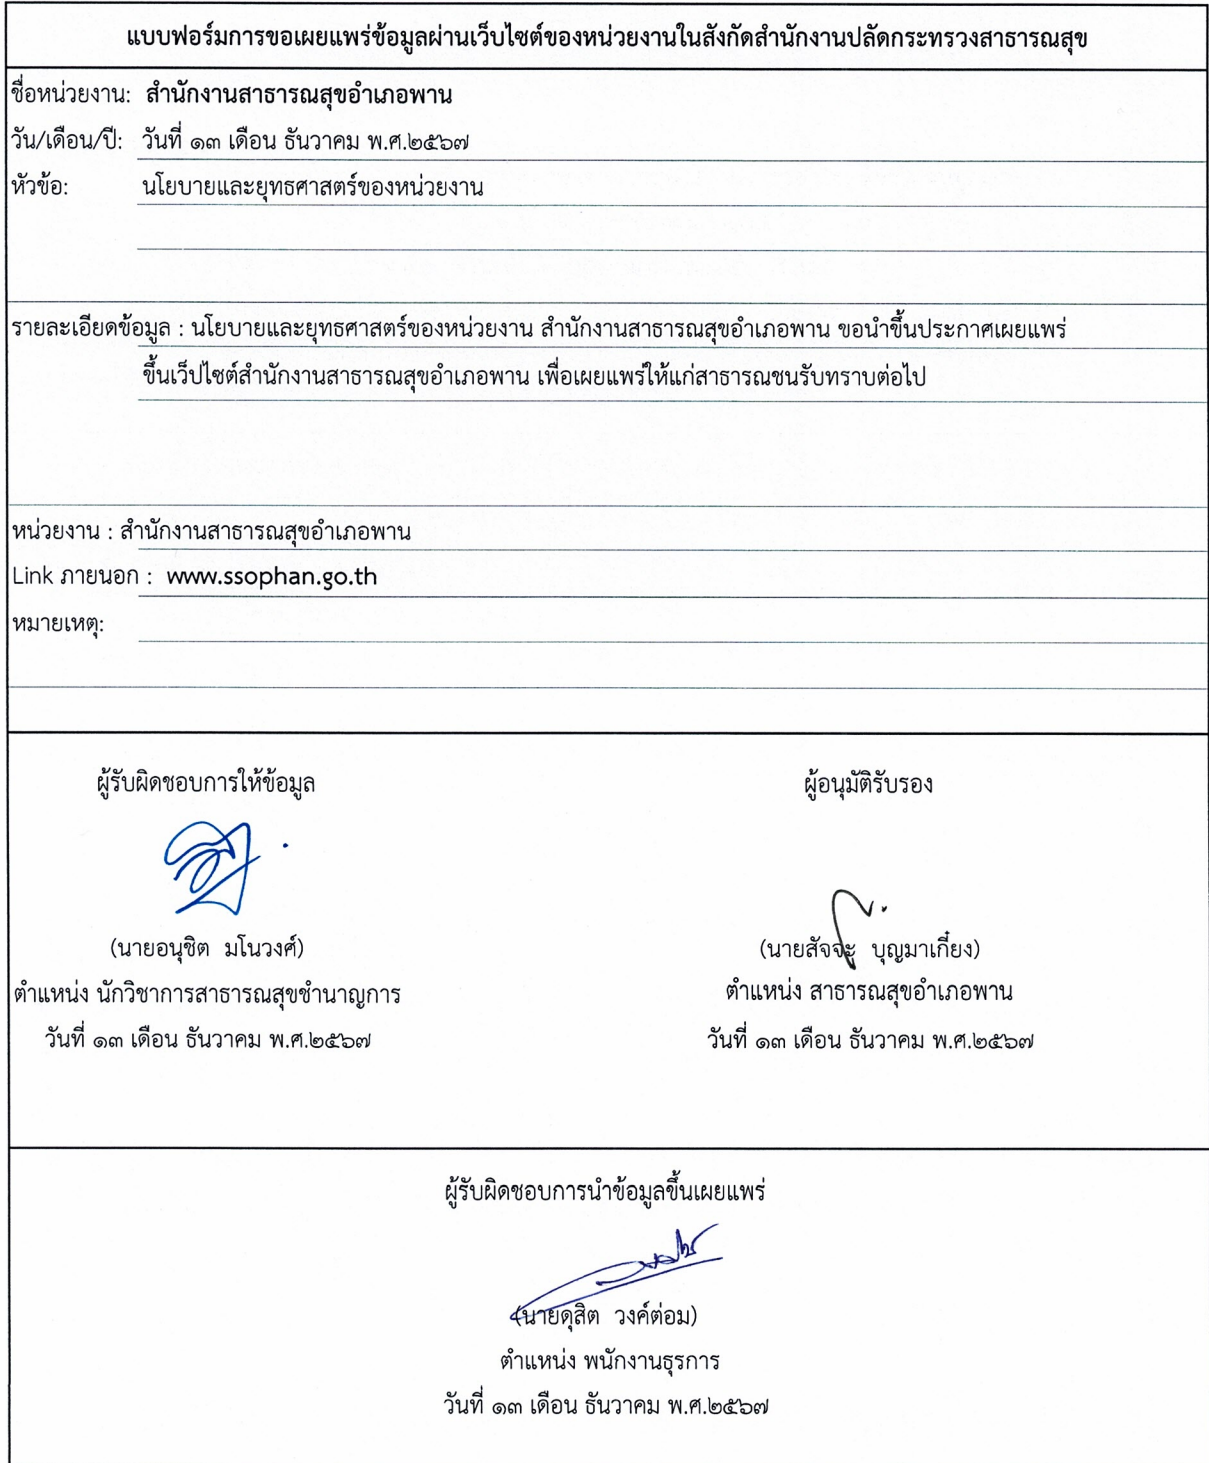 แบบฟอร์มการขอเผยแพร่ข้อมูลผ่านเว็บไซต์ของหน่วยงานในสังกัดสำนักงานปลัดกระทรวงสาธารณสุข
ชื่อหน่วยงาน: สำนักงานสาธารณสุขอำเภอพาน
วัน/เดือน/ปี: วันที่ ๑๓ เดือน ธันวาคม พ.ศ.๒๕๖๗
หัวข้อ: นโยบายและยุทธศาสตร์ของหน่วยงาน
รายละเอียดข้อมูล : นโยบายและยุทธศาสตร์ของหน่วยงาน สำนักงานสาธารณสุขอำเภอพาน ขอนำขึ้นประกาศเผยแพร่
ขึ้นเว็ปไซต์สำนักงานสาธารณสุขอำเภอพาน เพื่อเผยแพร่ให้แก่สาธารณชนรับทราบต่อไป
หน่วยงาน : สำนักงานสาธารณสุขอำเภอพาน
Link ภายนอก : www.ssophan.go.th
หมายเหตุ:
ผู้รับผิดชอบการให้ข้อมูล
(นายอนุชิต มโนวงศ์)
ตำแหน่ง นักวิชาการสาธารณสุขชำนาญการ
วันที่ ๑๓ เดือน ธันวาคม พ.ศ.๒๕๖๗
ผู้อนุมัติรับรอง
(นายสัจจะ บุญมาเกี๋ยง)
ตำแหน่ง สาธารณสุขอำเภอพาน
วันที่ ๑๓ เดือน ธันวาคม พ.ศ.๒๕๖๗
ผู้รับผิดชอบการนำข้อมูลขึ้นเผยแพร่
(นายดุสิต วงค์ต่อม)
ตำแหน่ง พนักงานธุรการ
วันที่ ๑๓ เดือน ธันวาคม พ.ศ.๒๕๖๗